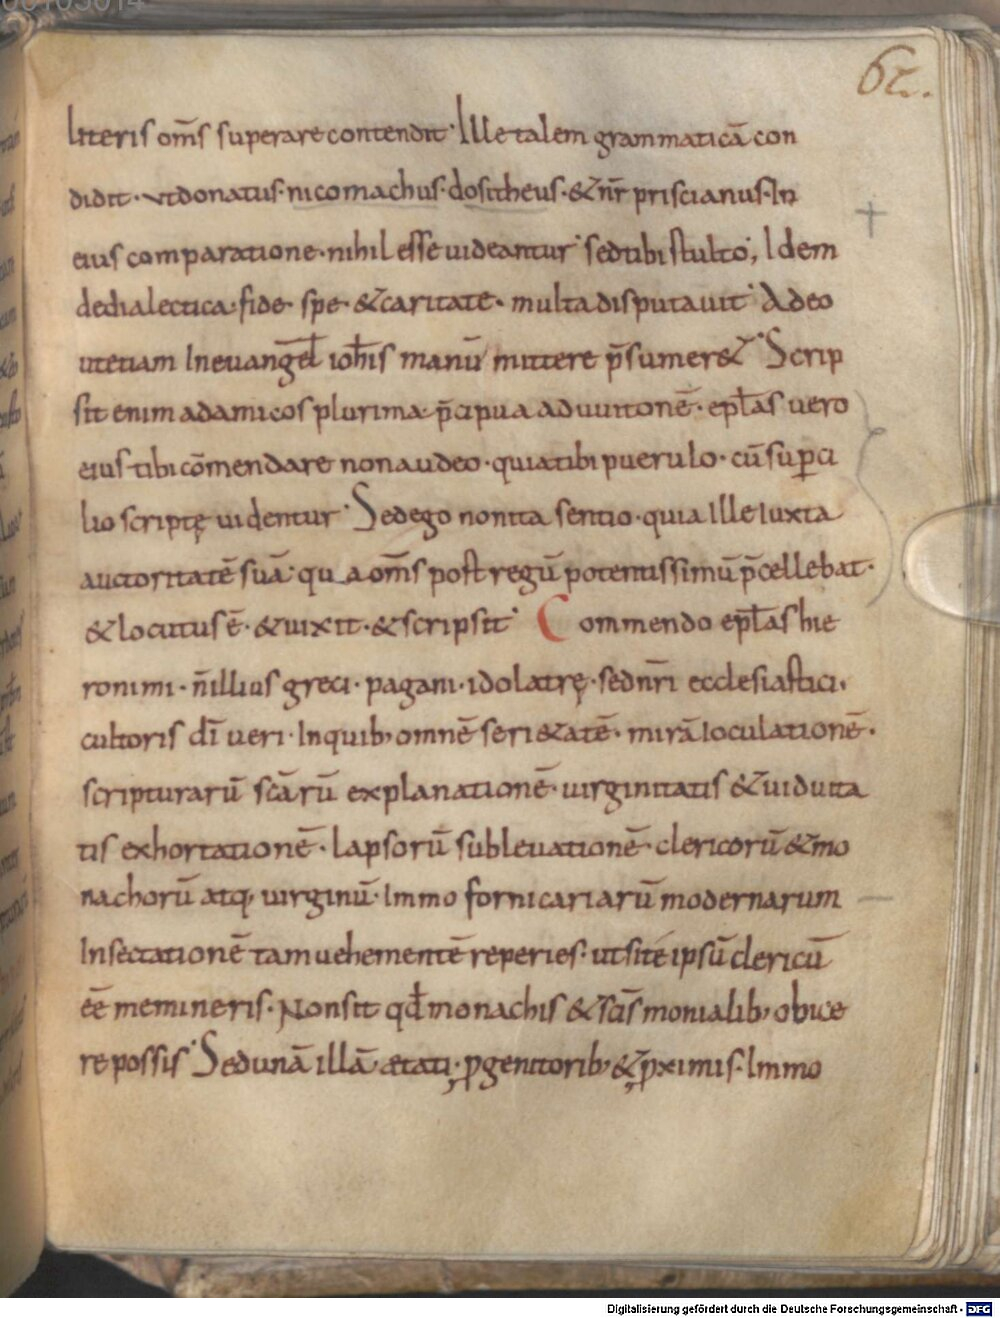 00103014
62.
literis om̅s superare contendit· Ille talem grammaticā con
didit· ut donatus· nicomachus· dositheus· & nr̅ priscianus· In
eius comparatione· nihil esse uideantur· sed tibi stulto; Idem
de dialectica· fide· spe· & caritate· multa disputauit· Adeo
ut etiam In euangel̅ ioh̅is manū mittere p̅sumer&· Scrip
sit enim ad amicos plurima· p̅cipua ad uuitonē· epl̅as uero
eius tibi cōmendare non audeo· quia tibi puerulo· cū sup̱ci
lio scriptę uidentur· Sed ego non ita sentio· quia Ille Iuxta
auctoritatē suā· qu a om̅s post regū potentissimū p̅cellebat·
& locutus ē· & uixit· & scripsit· Commendo epl̅as hie
ronimi· n̅ illius greci· pagani· idolatrę· sed nr̅i ecclesiastici·
cultoris dī ueri· In quib; omnē seri&atē· mirā Ioculationē·
scripturarū sc̅arū explanationē· uirginitatis & uiduita
tis exhortationē· lapsorū subleuationē· clericorū & mo
nachorū atq; uirginū· Immo fornicariarū modernarum
Insectationē tam uehementē reperies· ut sitē ipsū clericū
ēe memineris· Non sit qd̅ monachis & sc̅is monialib; obice
re possis· Sed unā illā ætati· ꝓgenitorib; & ꝓximis· Immo
Digitalisierung gefördert durch die Deutsche Forschungsgemeinschaft · DFG